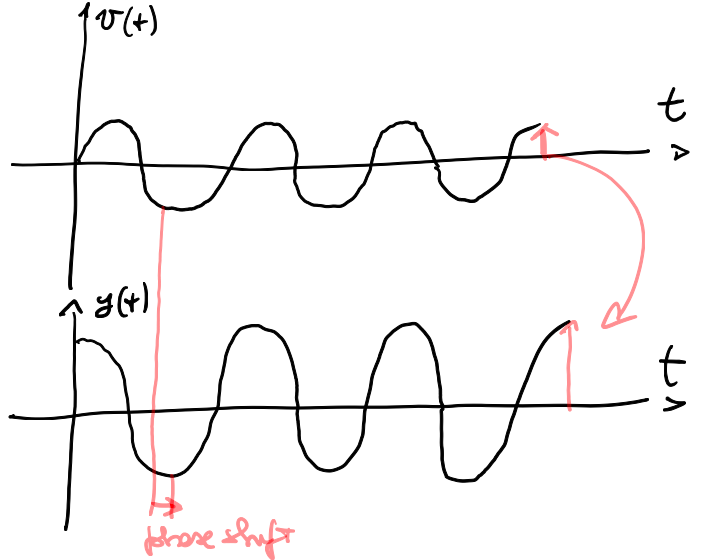 v(t)
t
y(t)
t
phase shift